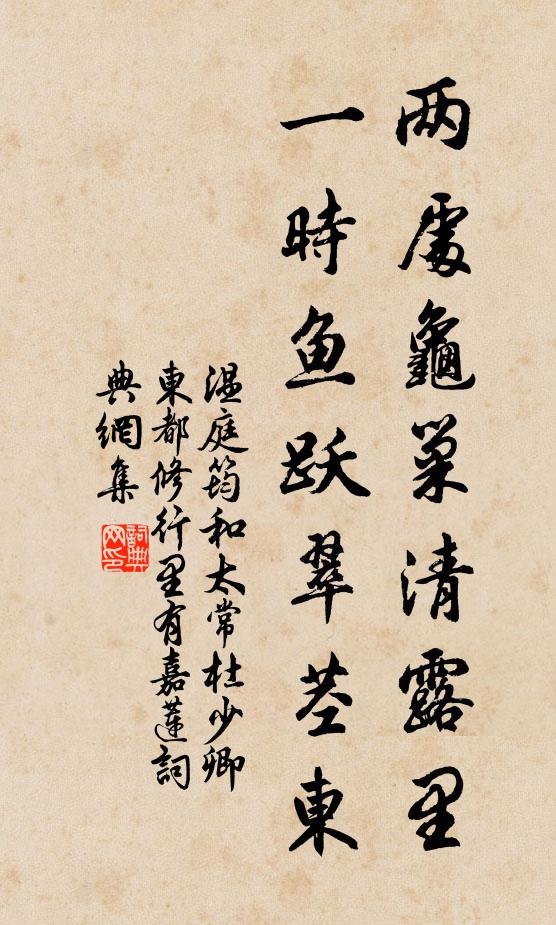 两處龜巢清露里
一時鱼跃翠茎東
温庭筠和太常杜少卿
東都修行里有嘉蓮詞
典網集
詞典網印